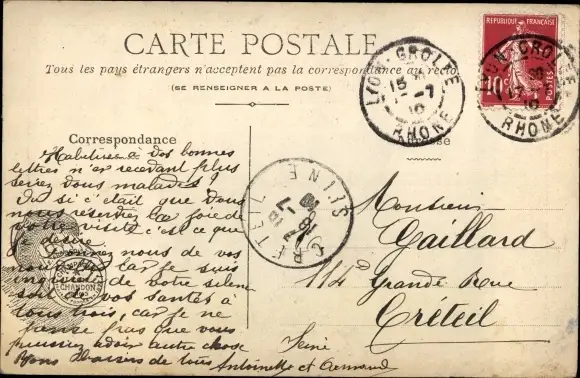 CARTE POSTALE
Tous les pays étrangers n'acceptent pas la correspondance au recto
(SE RENSEIGNER A LA POSTE)
REPUBLIQUE FRANÇAISE
10c
POSTES
LYON-GROLÉE
15
-7
10
RHONE
LYON-GROLÉE
10
RHONE
Correspondance
Habitués à vos bonnes
lettres n'en recevant plus
seriez vous malades?
Ou si c'était que vous
nous réserviez la joie de
votre visite c'est ce que
je désire.
Donnez nous de vos
car je suis
de votre silence
vos santés à
tous trois, car je ne
pense pas que vous
puissiez avoir autre chose
Bons baisers de tous Antoinette et Armand
CHANDON
CRETEIL
SEINE
Monsieur
Gaillard
114 Grande Rue
Créteil
Seine